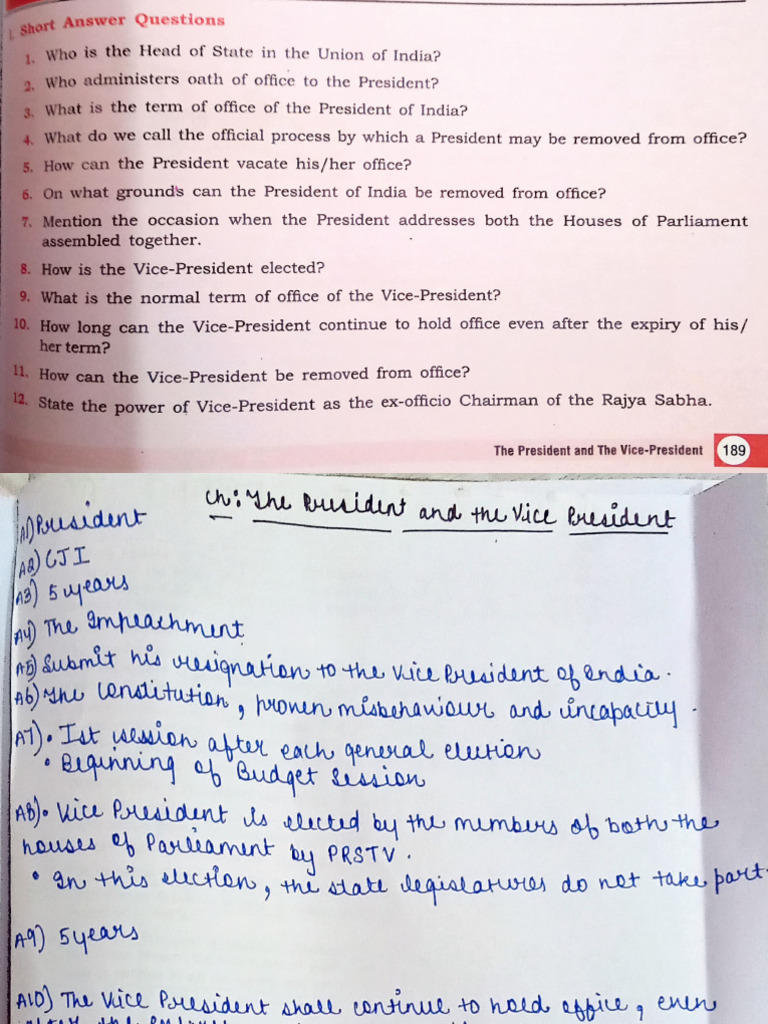 I. Short Answer Questions
1. Who is the Head of State in the Union of India?
2. Who administers oath of office to the President?
3. What is the term of office of the President of India?
4. What do we call the official process by which a President may be removed from office?
5. How can the President vacate his/her office?
6. On what grounds can the President of India be removed from office?
7. Mention the occasion when the President addresses both the Houses of Parliament
assembled together.
8. How is the Vice-President elected?
9. What is the normal term of office of the Vice-President?
10. How long can the Vice-President continue to hold office even after the expiry of his/
her term?
11. How can the Vice-President be removed from office?
12. State the power of Vice-President as the ex-officio Chairman of the Rajya Sabha.
The President and The Vice-President 189
Ch: The President and the Vice President
A1) President
A2) CJI
A3) 5 years
A4) The Impeachment
A5) Submit his resignation to the Vice President of India.
A6) The Constitution, proven misbehaviour and incapacity.
A7) • Ist session after each general election
• Beginning of Budget Session
A8) • Vice President is elected by the members of both the
houses of Parliament by PRSTV.
• In this election, the state legislatures do not take part.
A9) 5 years
A10) The Vice President shall continue to hold office, even
after the